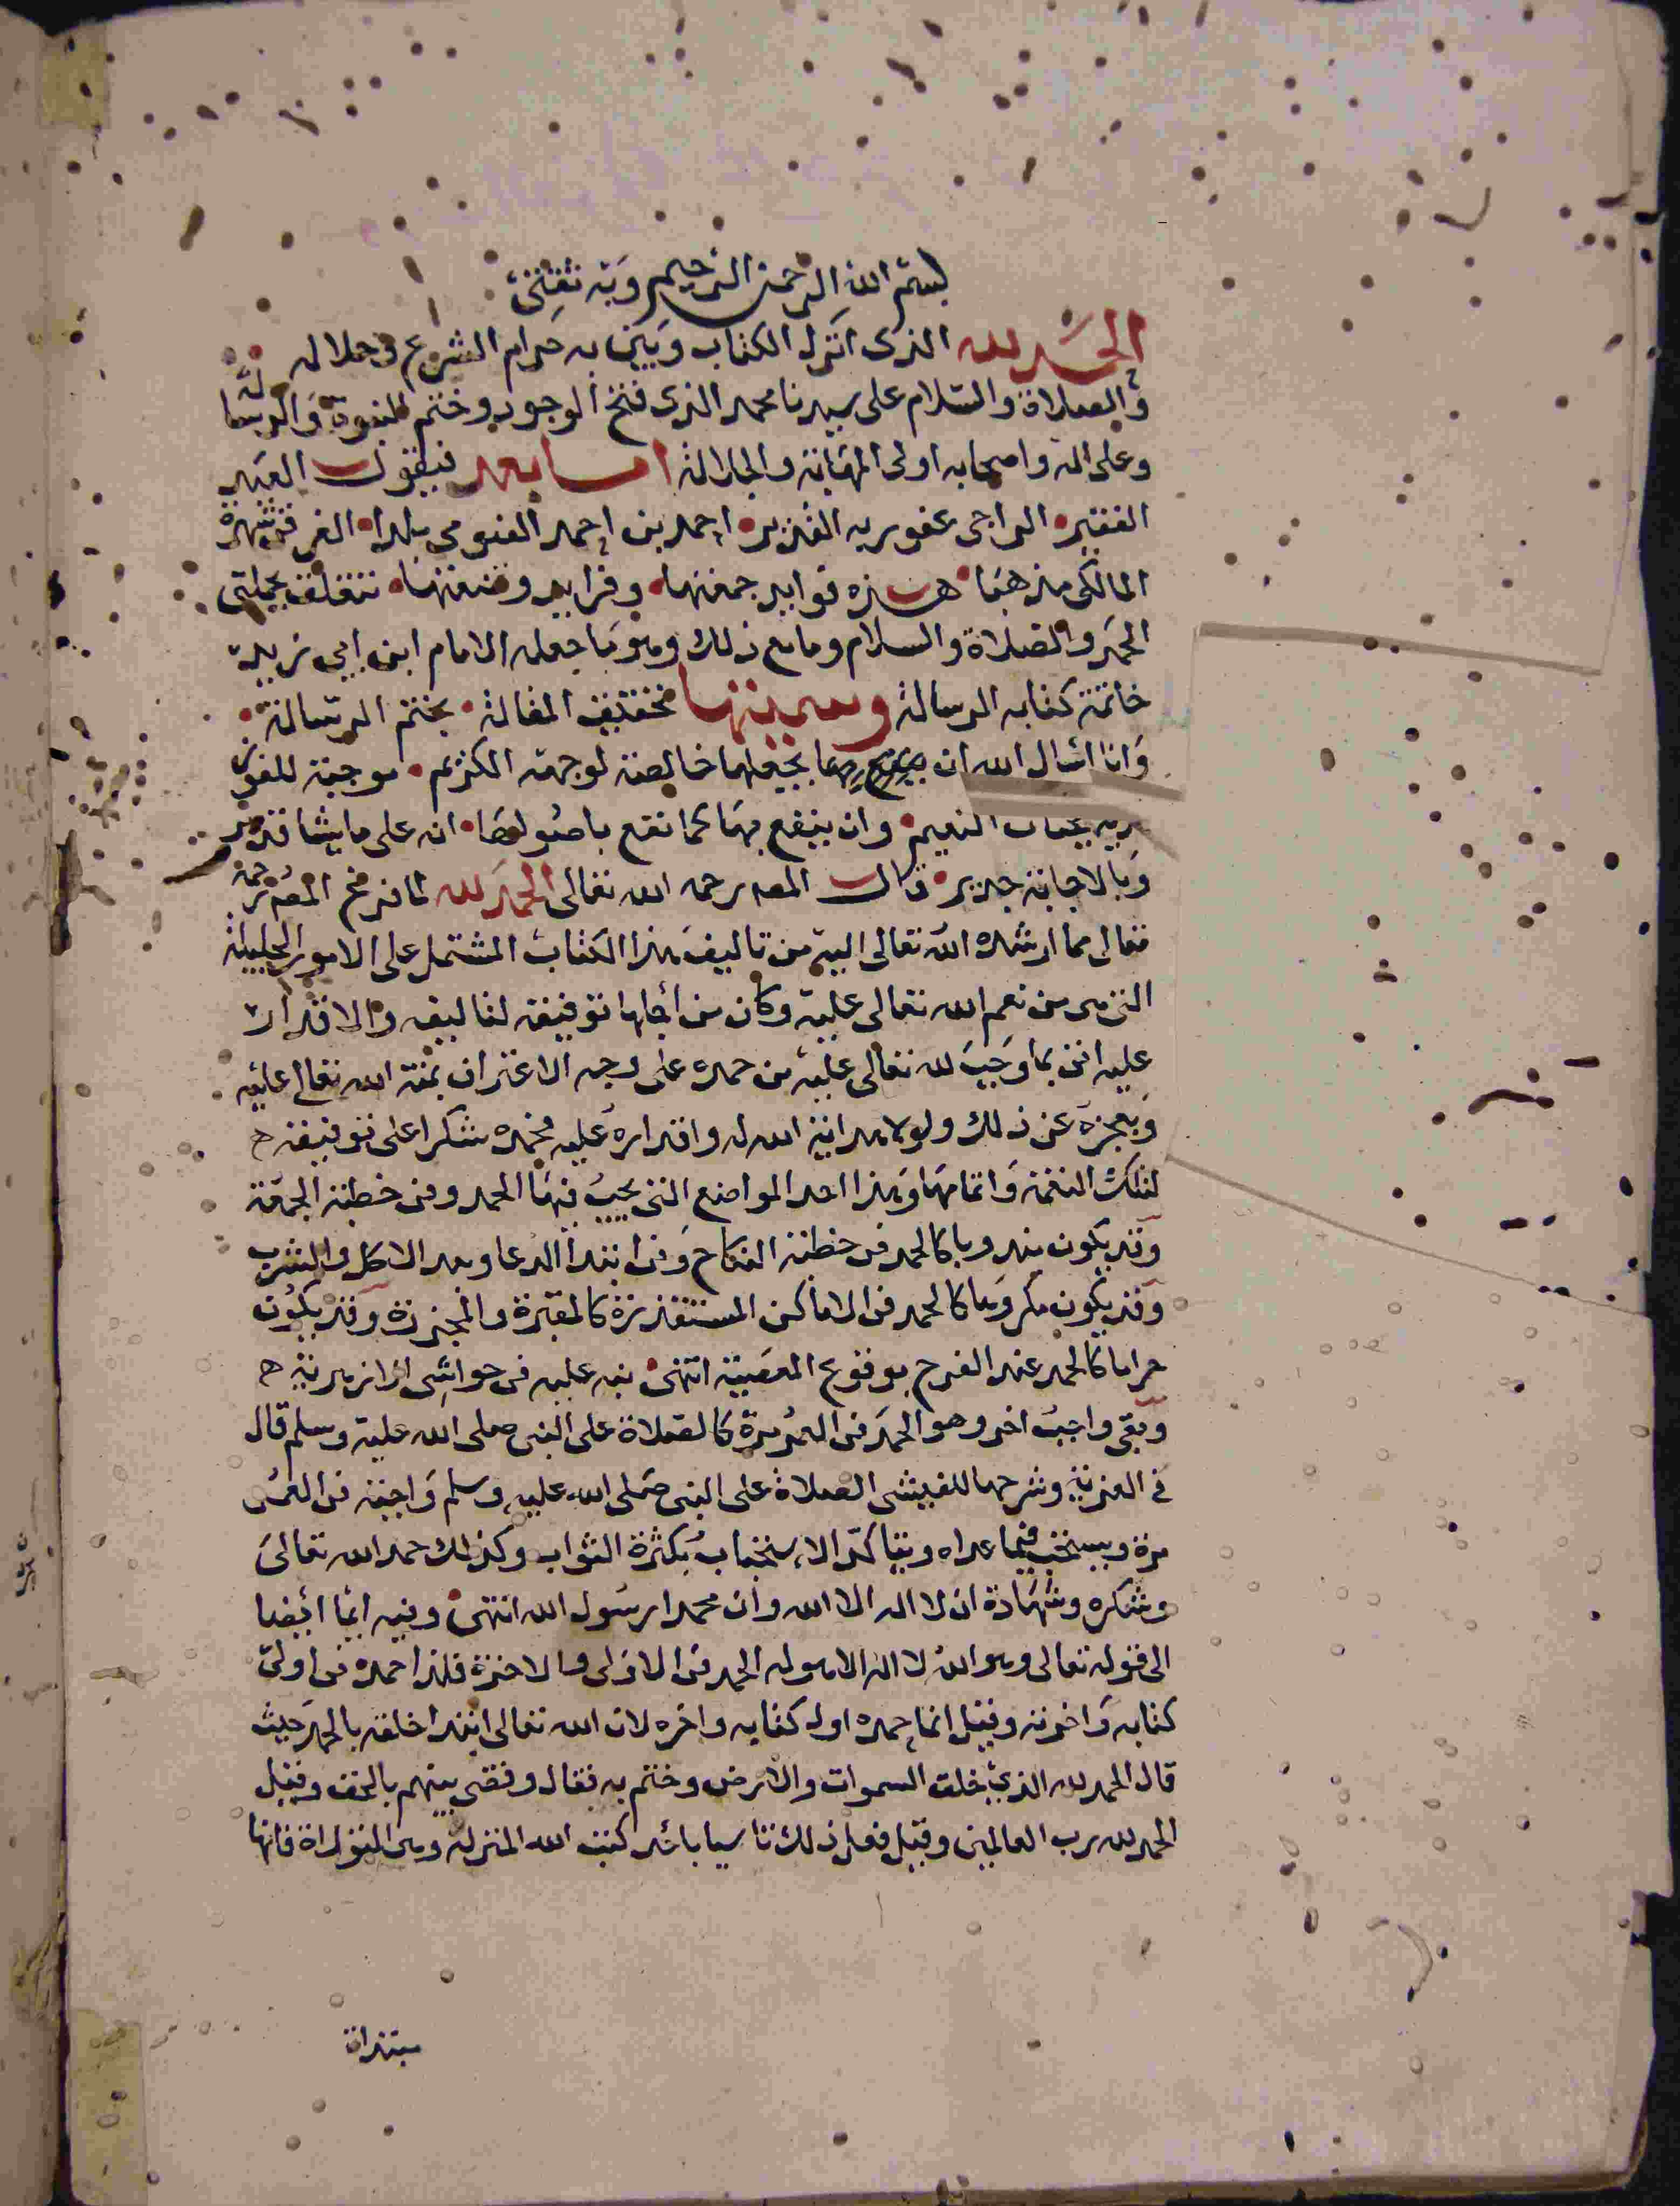 بسم الله الرحمن الرحيم وبه ثقتي
الحمد لله الذي انزل الكتاب وبين به حرام الشرع وحلاله
والصلاة والسلام على سيدنا محمد الذي فتح الوجود وختم النبوة والرسالة
وعلى اله واصحابه اولى المهابة والجلالة اما بعد فيقول العبد
الفقير الراجي عفو ربه القدير احمد بن احمد الفيومي بلدا الغرقي شهرة
المالكي مذهبا هذه فوايد جمعتها وفرايد وضعتها تتعلق بجملتي
الحمد والصلاة والسلام وما مع ذلك وهو ما جعله الامام ابن ابي زيد
خاتمة كتابه الرسالة وسميتها تحقيق المقالة بختم الرسالة
وانا اسال الله ان يجعلها خالصة لوجهه الكريم موجبة للفوز
لديه بجنات النعيم وان ينفع بها كما نفع باصولها انه على ما يشا قدير
وبالاجابة جدير قال المص رحمه الله تعالى الحمد لله لما فرغ المص رحمه
تعالى مما ارشده الله تعالى اليه من تاليف هذا الكتاب المشتمل على الامور الجليلة
التي هي من نعم الله تعالى عليه وكان من اجلها توفيقه لتاليفه والاقدار
عليه اتى بما وجب لله تعالى عليه من حمده على وجه الاعتراف بمنة الله تعالى عليه
وبعجزه عن ذلك ولولا هداية الله له واقداره عليه فحمده شكرا على توفيقه
لتلك النعمة واتمامها وهذا احد المواضع التي يجب فيها الحمد وفي خطبة الجمعة
وقد يكون مندوبا كالحمد في خطبة النكاح وفي ابتدا الدعا وبعد الاكل والشرب
وقد يكون مكروها كالحمد في الاماكن المستقذرة كالمقبرة والمجزرة وقد يكون
حراما كالحمد عند الفرح بوقوع المعصية انتهى نبه عليه في حواشي الازهرية
وبقي واجب اخر وهو الحمد في العمر مرة كالصلاة على النبي صلى الله عليه وسلم قال
في العزية وشرحها للفيشي الصلاة على النبي صلى الله عليه وسلم واجبة في العمر
مرة ويستحب فيما عداه ويتاكد الاستحباب بكثرة الثواب وكذلك حمد الله تعالى
وشكره وشهادة ان لا اله الا الله وان محمدا رسول الله انتهى وفيه ايما ايضا
الى قوله تعالى وهو الله لا اله الا هو له الحمد في الاولى والاخرة فلذا حمده في اول
كتابه واخرته وقيل انما حمده اول كتابه واخره لان الله تعالى ابتدا خلقه بالحمد حيث
قال الحمد لله الذي خلق السموات والارض وختم به فقال وقضى بينهم بالحق وقيل
الحمد لله رب العالمين وقيل فعل ذلك تاسيا باشد كتب الله المنزلة وهي التوراة فانها
مبتداة